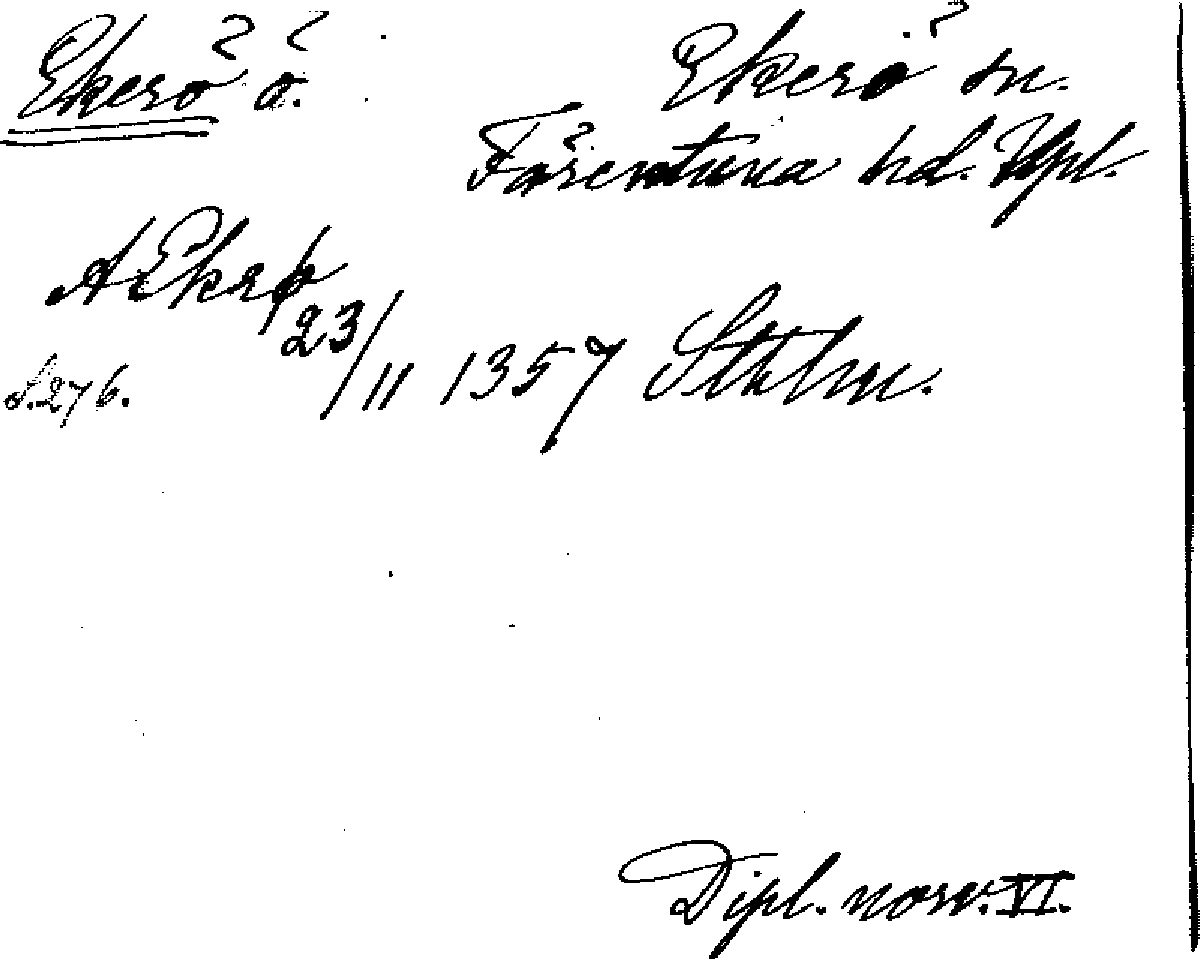 Ekerö ö.
Ekerö sn.
Färentuna hd. Upl.
A Ekrø
23/11 1357 Sthlm.
S. 276.
Dipl. norv. VI.